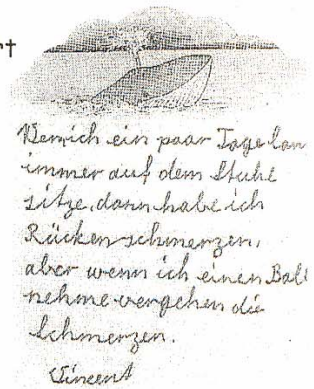 t
Wenn ich ein paar Tage lan
immer auf dem Stuhl
sitze, dann habe ich
Rückenschmerzen,
aber wenn ich einen Bal
nehme vergehen die
Schmerzen.
Vincent